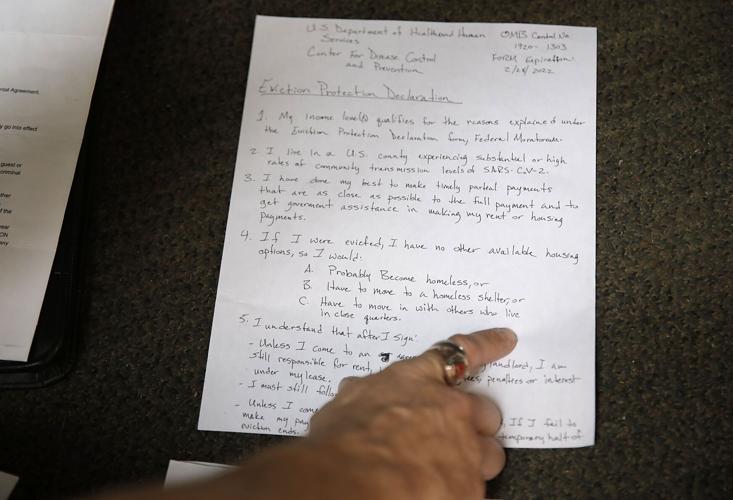 rsal Agreement.
y go into effect
guest or
criminal
ther
of the
year
ON
any
U.S. Department of Health and Human
Services
Center For Disease Control
and Prevention
OMB Control No.
1920-1303
Form Expiration:
2/28/2022
Eviction Protection Declaration
1. My income level(s) qualifies for the reasons explained under
the Eviction Protection Declaration form, Federal Moratorum.
2. I live in a U.S. county experiencing substantial or high
rates of community transmission levels of SARS-CV-2.
3. I have done my best to make timely parteal payments
that are as close as possible to the full payment and to
get goverment assistance in making my rent or housing
payments.
4. If I were evicted, I have no other available housing
options, so I would:
A. Probably Become homeless, or
B. Have to move to a homeless shelter, or
C. Have to move in with others who live
in close quarters.
5. I understand that after I sign:
- Unless I come to an landlord, I am
still responsible for rent, penalties or interest
under my lease.
- I must still follow
- Unless I come If I fail to
make my pay temporary halt of
eviction ends.